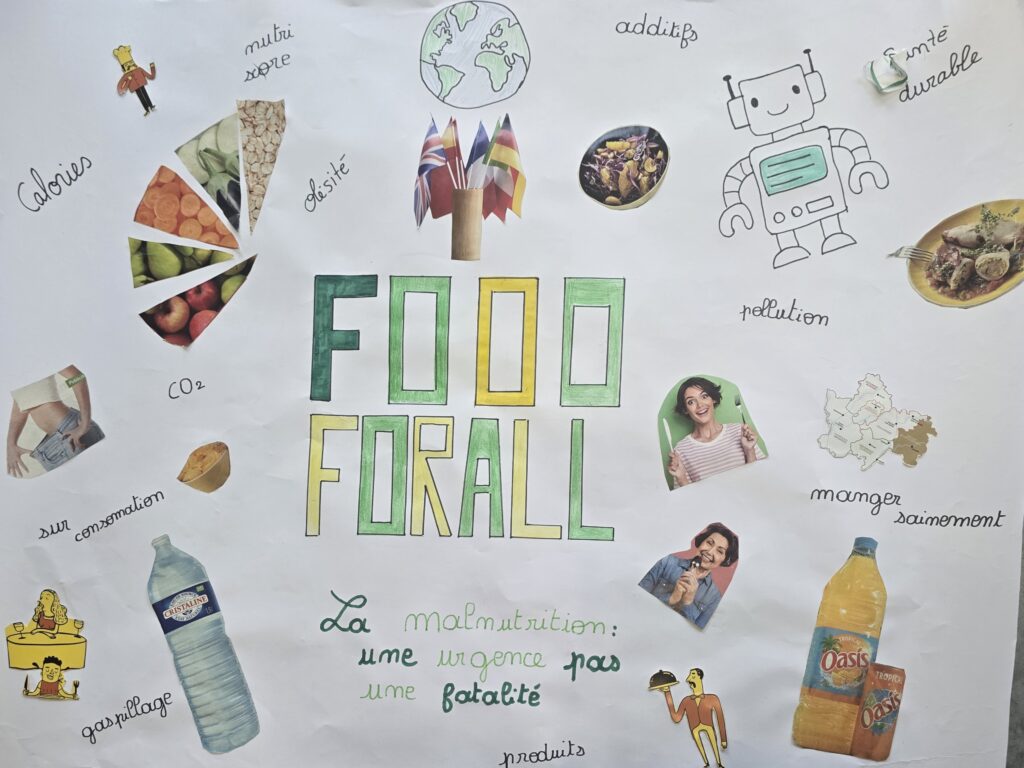 nutri
score
additifs
Santé
durable
Calories
obésité
FOOD
pollution
CO2
FOR ALL
manger
sainement
sur
consomation
CRISTALINE
La malnutrition:
une urgence pas
une fatalité
TROPICAL
Oasis
TROPICAL
Oasis
gaspillage
produits